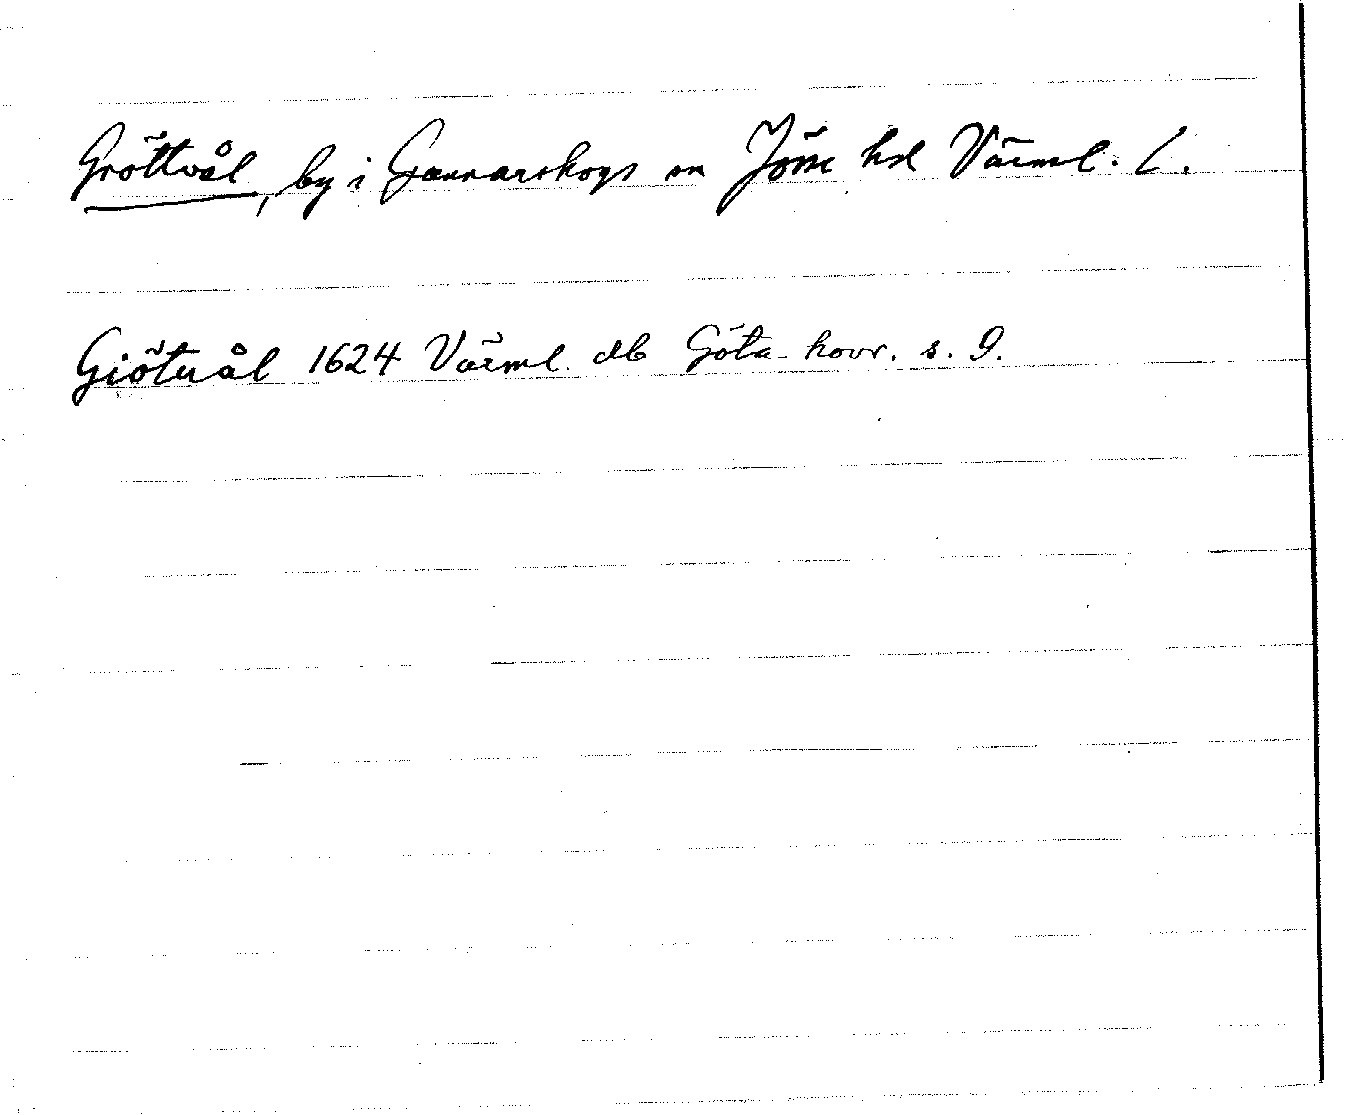 Gröttvål, by i Gunnarskogs sn Jösse hd Värml. L.
Giötuål 1624 Värml. db Göta hovr. s. 9.